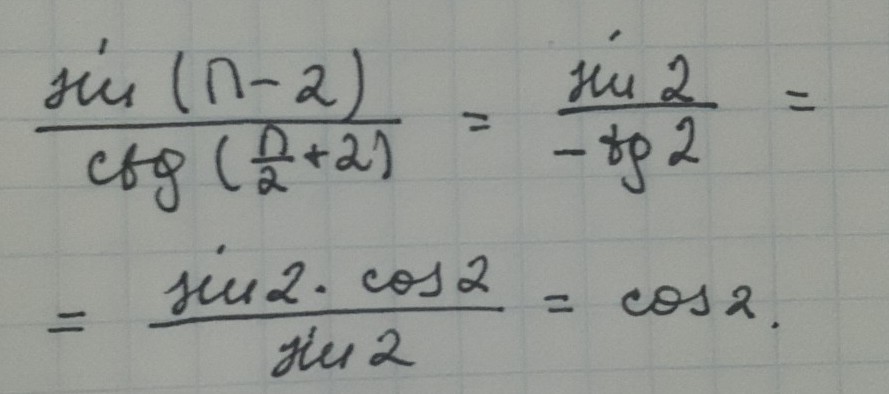 sin (π - 2) / ctg (π/2 + 2) = sin 2 / - tg 2 =
= sin 2 · cos 2 / sin 2 = cos 2.